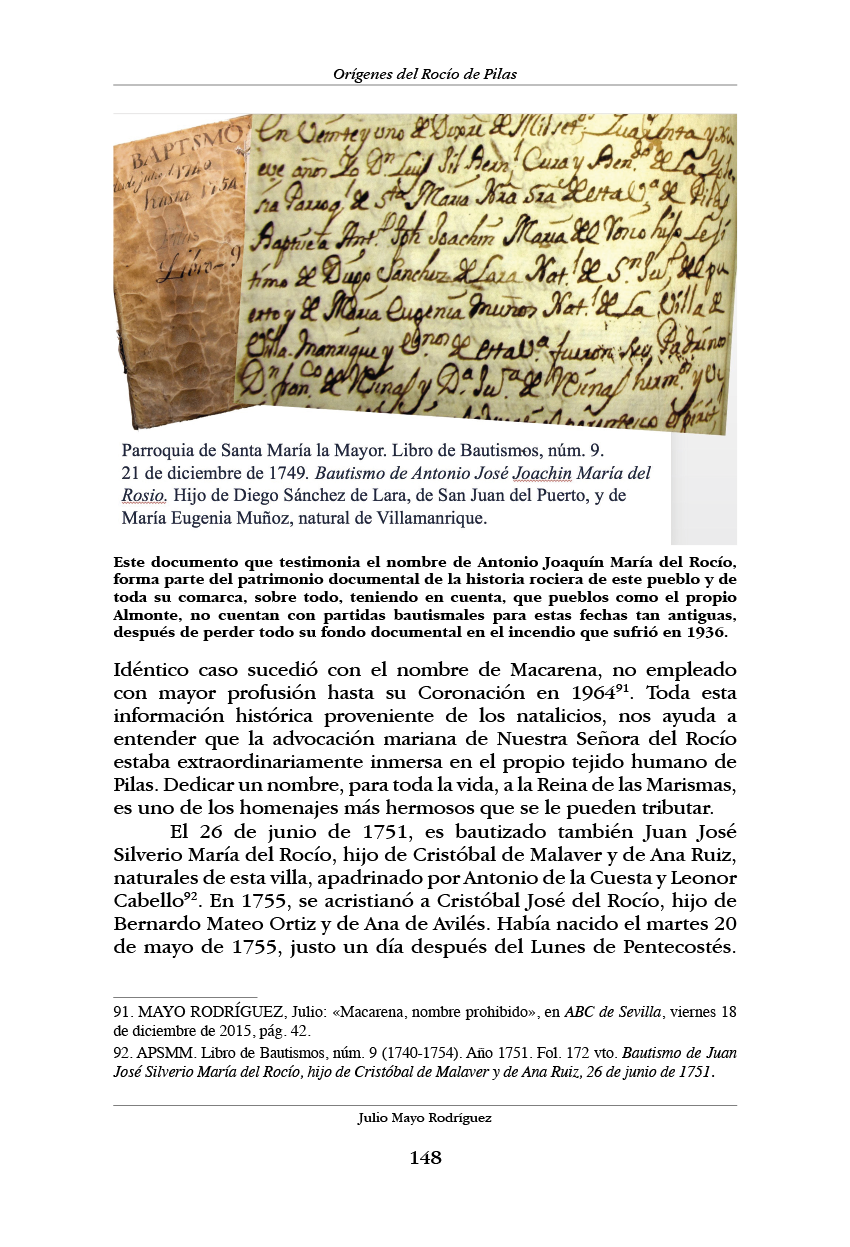 Orígenes del Rocío de Pilas
BAPTSMO
desde julio 1740
hasta 1754.
Libro-9
En Veinte y uno de Dizre de Mil setos. Quarenta y Nu
eve años Yo Dn. Luis Gil Bernl. Cura y Bendo. de La Ygle
sia Parroql. de Sta María Nra Sra de esta Va. de Pilas
Baptise a Anto. Jph Joachin María del Rosio hijo Legi
timo de Diego Sanchez de Lara Natl. de Sn. Jun. del pu
erto y de María Eugenia muños Natl. de La Villa de
Villa-Manrique y Vnos de esta va. fueron sus Padrinos
Dn. franco de y Da de hermos y
espirit
Parroquia de Santa María la Mayor. Libro de Bautismos, núm. 9.
21 de diciembre de 1749. Bautismo de Antonio José Joachin María del
Rosio. Hijo de Diego Sánchez de Lara, de San Juan del Puerto, y de
María Eugenia Muñoz, natural de Villamanrique.
Este documento que testimonia el nombre de Antonio Joaquín María del Rocío,
forma parte del patrimonio documental de la historia rociera de este pueblo y de
toda su comarca, sobre todo, teniendo en cuenta, que pueblos como el propio
Almonte, no cuentan con partidas bautismales para estas fechas tan antiguas,
después de perder todo su fondo documental en el incendio que sufrió en 1936.
Idéntico caso sucedió con el nombre de Macarena, no empleado
con mayor profusión hasta su Coronación en 1964⁹¹. Toda esta
información histórica proveniente de los natalicios, nos ayuda a
entender que la advocación mariana de Nuestra Señora del Rocío
estaba extraordinariamente inmersa en el propio tejido humano de
Pilas. Dedicar un nombre, para toda la vida, a la Reina de las Marismas,
es uno de los homenajes más hermosos que se le pueden tributar.
El 26 de junio de 1751, es bautizado también Juan José
Silverio María del Rocío, hijo de Cristóbal de Malaver y de Ana Ruiz,
naturales de esta villa, apadrinado por Antonio de la Cuesta y Leonor
Cabello⁹². En 1755, se acristianó a Cristóbal José del Rocío, hijo de
Bernardo Mateo Ortiz y de Ana de Avilés. Había nacido el martes 20
de mayo de 1755, justo un día después del Lunes de Pentecostés.
91. MAYO RODRÍGUEZ, Julio: «Macarena, nombre prohibido», en ABC de Sevilla, viernes 18
de diciembre de 2015, pág. 42.
92. APSMM. Libro de Bautismos, núm. 9 (1740-1754). Año 1751. Fol. 172 vto. Bautismo de Juan
José Silverio María del Rocío, hijo de Cristóbal de Malaver y de Ana Ruiz, 26 de junio de 1751.
Julio Mayo Rodríguez
148